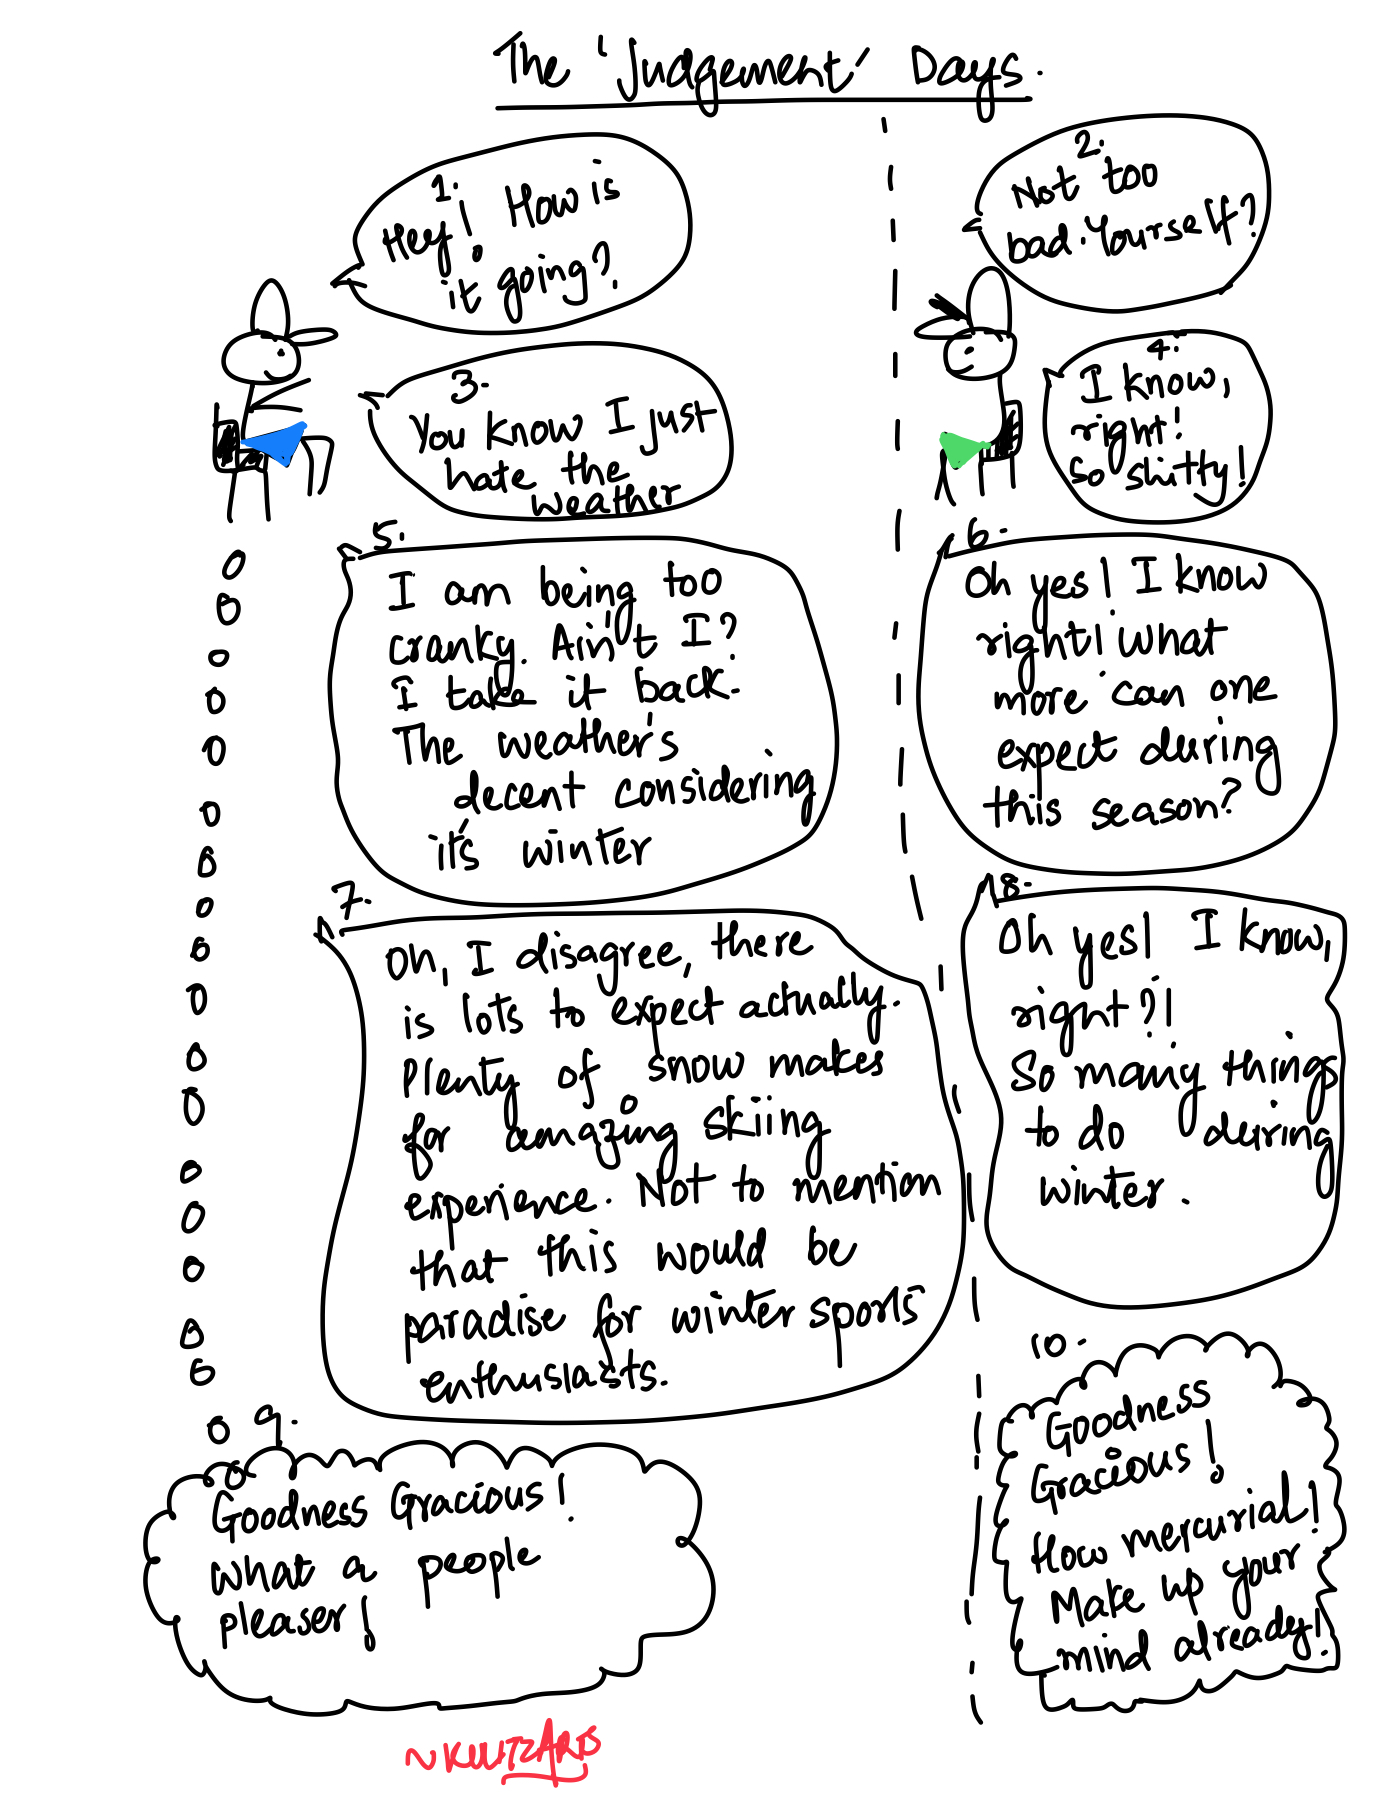 The 'Judgement' Days.
1.
Hey! How is
it going?
2.
Not too
bad. Yourself?
3.
You know I just
hate the
weather
4.
I know,
right!
So shitty!
5.
I am being too
cranky. Ain't I?
I take it back.
The weather's
decent considering
it's winter
6.
Oh yes! I know
right! What
more can one
expect during
this season?
7.
Oh, I disagree, there
is lots to expect actually.
Plenty of snow makes
for amazing skiing
experience. Not to mention
that this would be
paradise for winter sports
enthusiasts.
8.
Oh yes! I know,
right?!
So many things
to do during
winter.
9.
Goodness Gracious!
What a people
pleaser!
10.
Goodness
Gracious!
How mercurial!
Make up your
mind already!